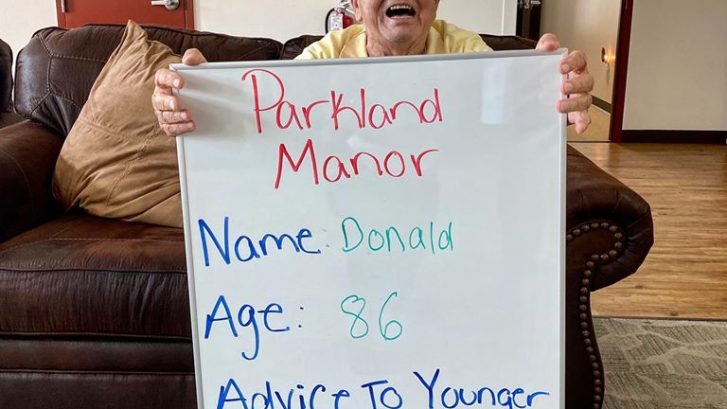 Parkland
Manor
Name: Donald
Age: 86
Advice To Younger